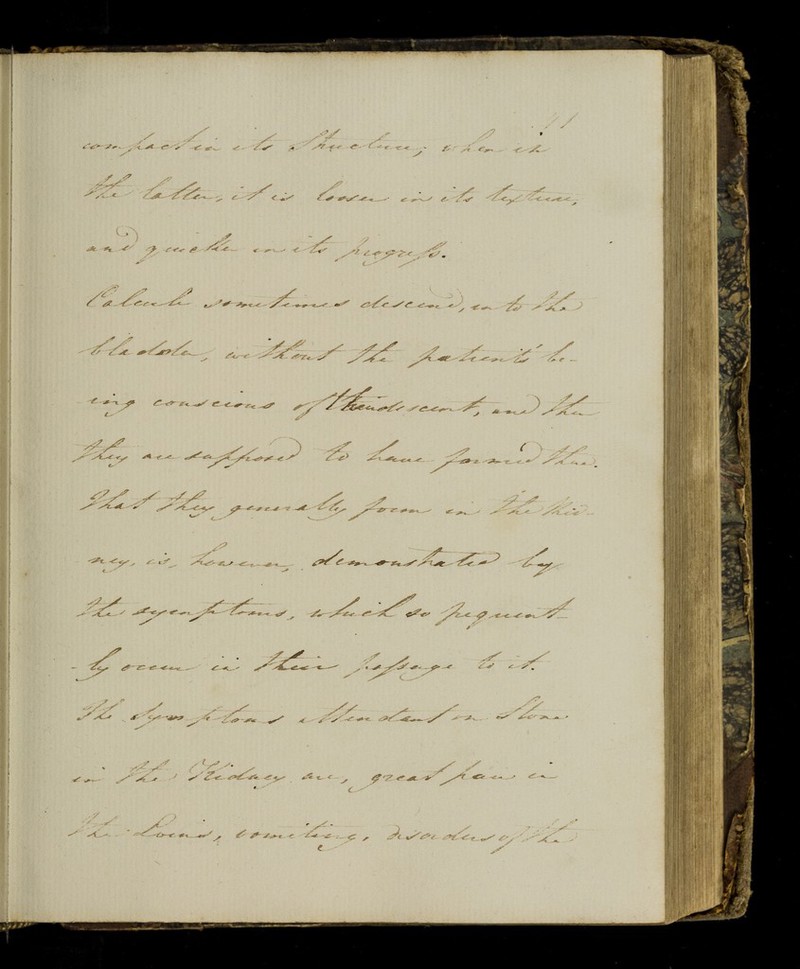 41
compact in its Structure; when in
the latter, it is looser in its texture,
and quicker in its progress.
Calculi sometimes descend, into the
bladder, without the patient's be-
ing conscious of their descent, and then
they are supposed to have formed there.
That they generally form in the Kid-
ney, is, however, demonstrated by
the symptoms, which so frequent-
-ly occur in their passage to it.
The Symptoms attendant on Stone
in the Kidney are, great pain in
the Loins, vomiting, disorders of the